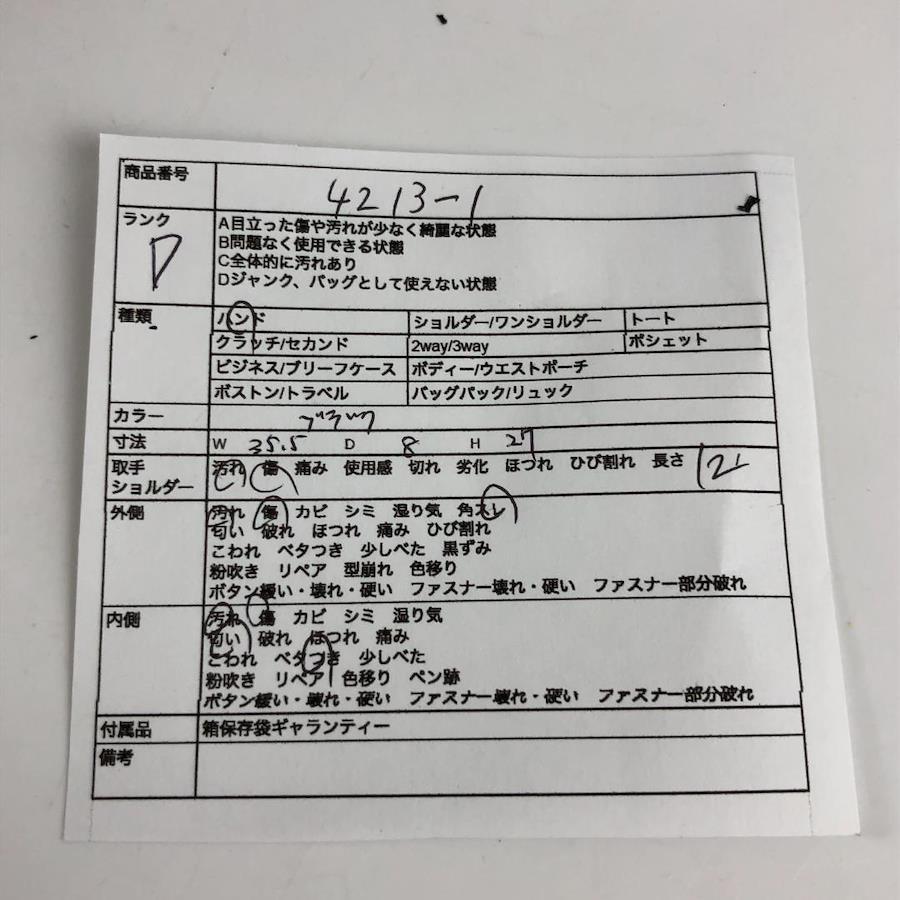 商品番号 4213-1
ランク D
A目立った傷や汚れが少なく綺麗な状態
B問題なく使用できる状態
C全体的に汚れあり
Dジャンク、バッグとして使えない状態
種類 ハンド ショルダー/ワンショルダー トート
クラッチ/セカンド 2way/3way ポシェット
ビジネス/ブリーフケース ボディー/ウエストポーチ
ボストン/トラベル バッグパック/リュック
カラー ブラック
寸法 W 35.5 D 8 H 27
取手 汚れ 傷 痛み 使用感 切れ 劣化 ほつれ ひび割れ 長さ
ショルダー
外側 汚れ 傷 カビ シミ 湿り気 角スレ
匂い 破れ ほつれ 痛み ひび割れ
こわれ ベタつき 少しべた 黒ずみ
粉吹き リペア 型崩れ 色移り
ボタン緩い・壊れ・硬い ファスナー壊れ・硬い ファスナー部分破れ
内側 汚れ 傷 カビ シミ 湿り気
匂い 破れ ほつれ 痛み
こわれ ベタつき 少しべた
粉吹き リペア 色移り ペン跡
ボタン緩い・壊れ・硬い ファスナー壊れ・硬い ファスナー部分破れ
付属品 箱保存袋ギャランティー
備考